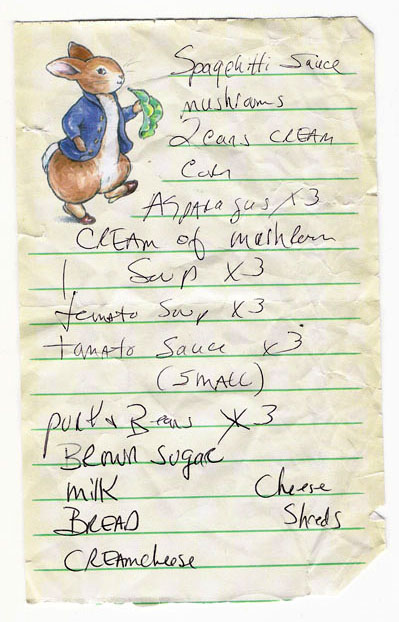 Spagehtti Sauce
mushrooms
2 cans CREAM
Corn
Asparagus X3
CREAM of mushroom
Soup X3
tomato Soup X3
tomato Sauce X3
(SMALL)
pork & Beans X3
Brown Sugar
milk Cheese
BREAD Shreds
CREAMcheese